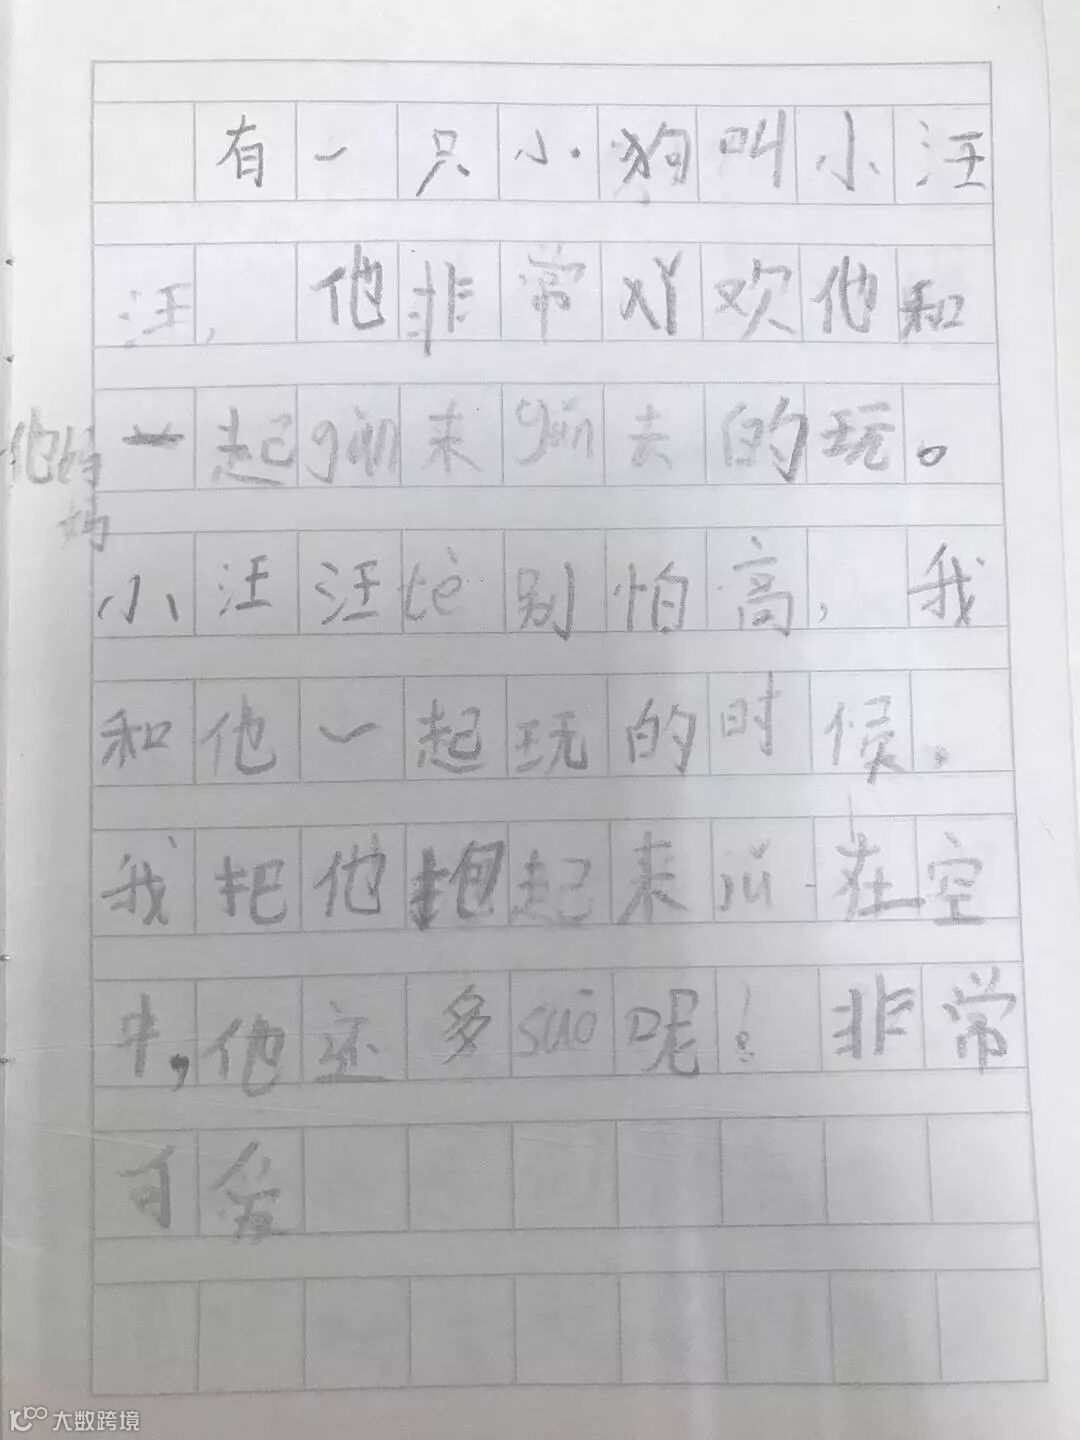 有一只小狗叫小汪
汪，他非常欢他和
他的妈妈一起gǔn来gǔn去的玩。
小汪汪tè别怕高，我
和他一起玩的时候，
我把他抱起来jǔ在空
中，他还多suō呢！非常
可爱
大数跨境